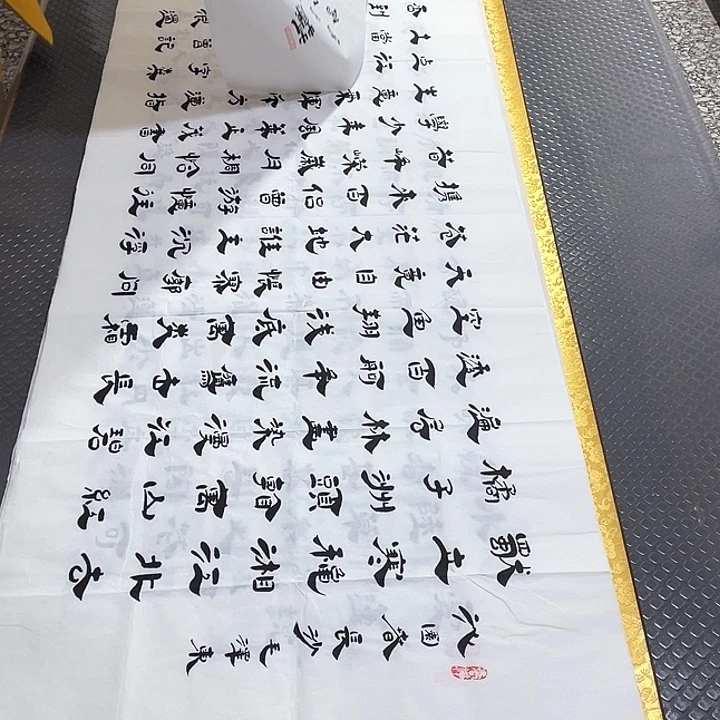 沁園春長沙毛澤東
獨立寒穐湘江北去
橘子洲頭看萬山紅
遍層林盡染漫江碧
透百舸爭流鷹擊長
空魚翔淺底萬類霜
天競自由悵寥廓問
蒼茫大地誰主沉浮
攜來百侶曾游憶往
昔崢嶸歲月稠恰同
學少年風華正茂書
生意氣揮斥方遒指
點江字糞
土當曾記
到浪遏